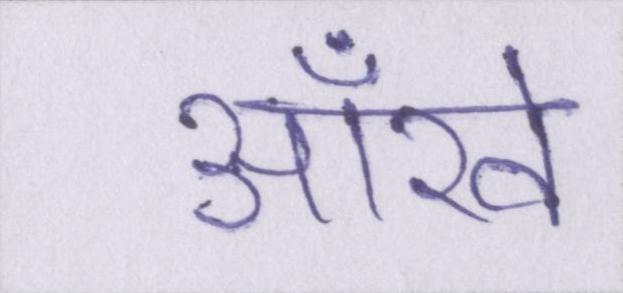 आँखे